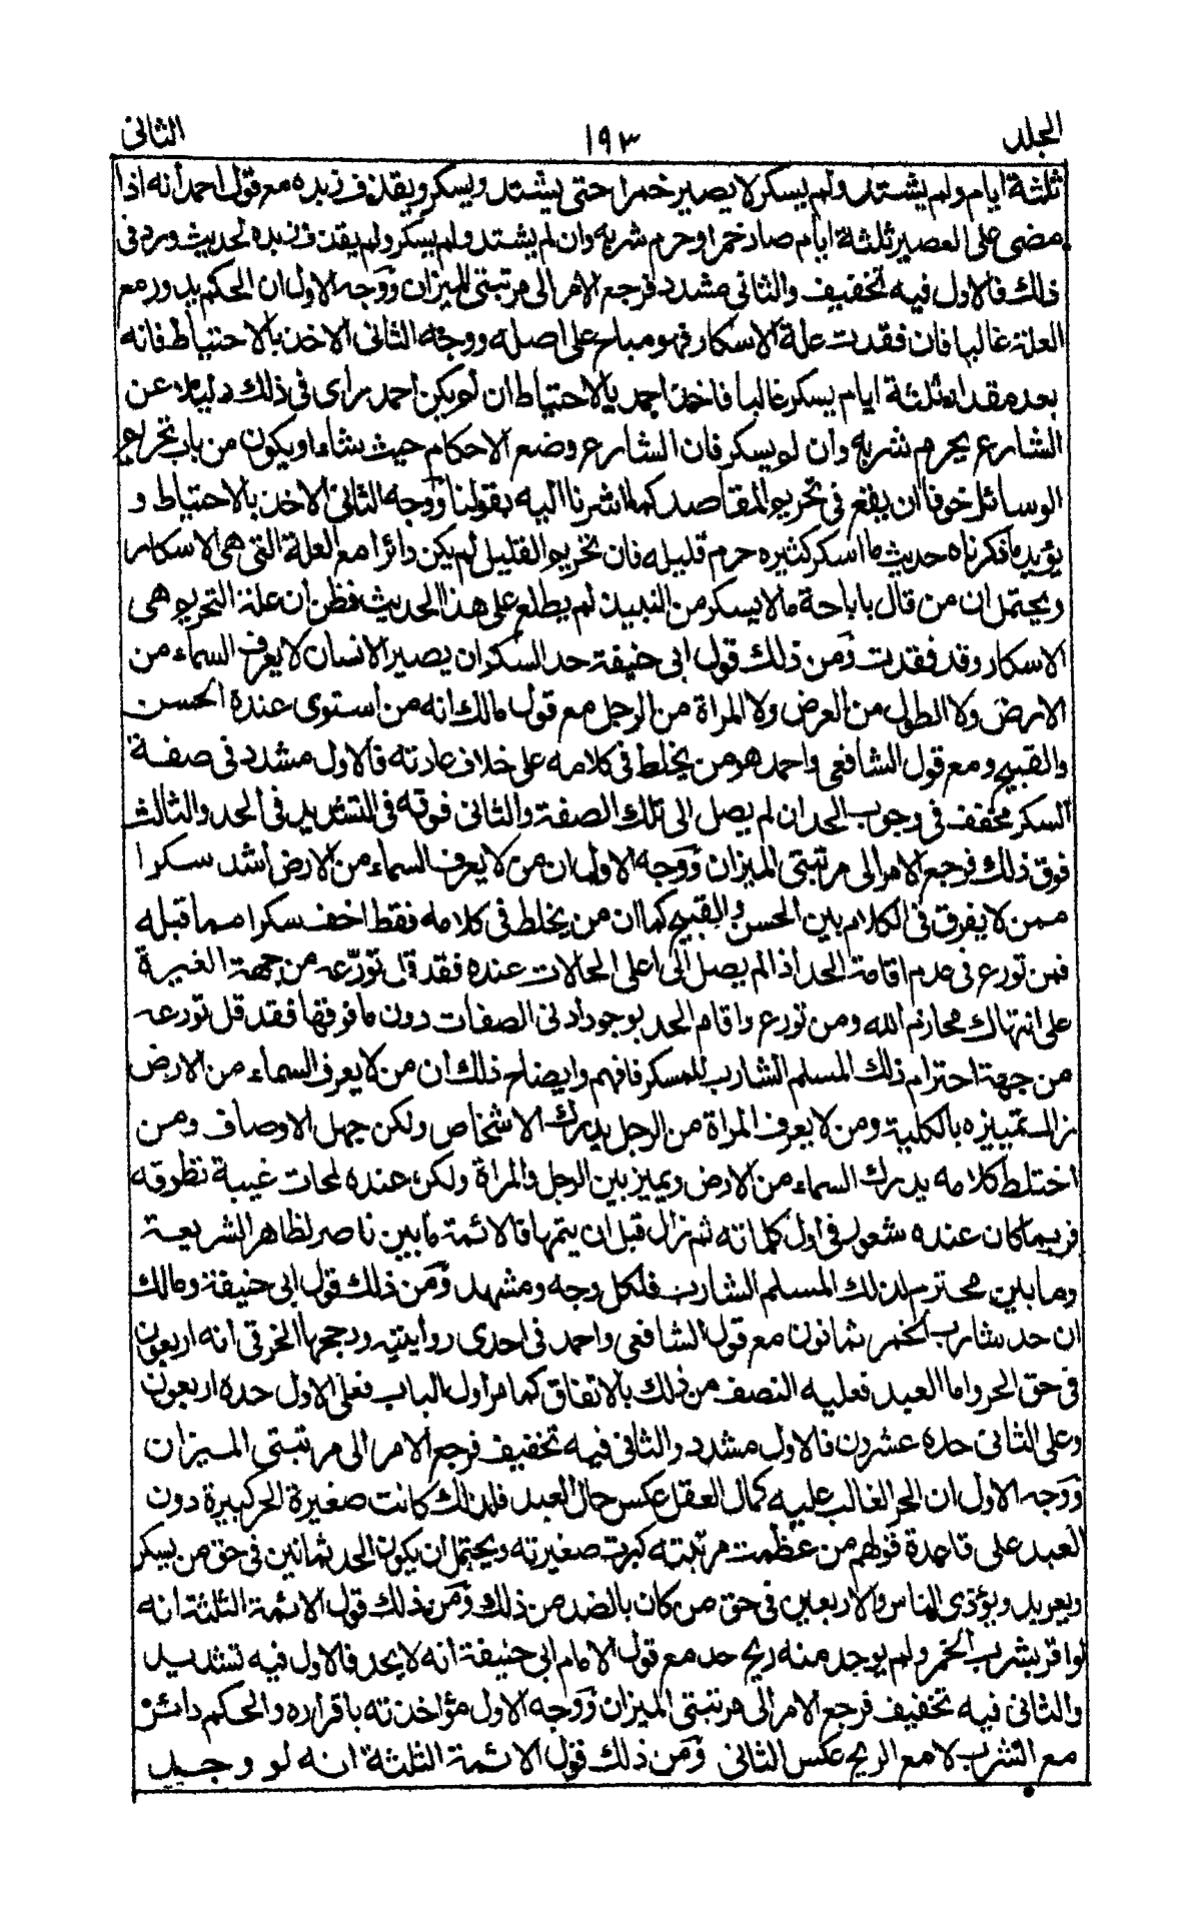 المجلد ١٩٣ الثانى
ثلثة ايام ولم يشتد ولم يسكر لا يصير خمرا حتى يشتد ويسكر ويقذف زبده مع قول احمد أنه اذا
مضى على العصير ثلثة ايام صار خمرا وحرم شربه وان لم يشتد ولم يسكر ولم يقذف زبده لحديث ورد فى
ذلك فالاول فيه تخفيف والثانى مشدد فرجع الامر الى مرتبتى الميزان ووجه الاول ان الحكم يدور مع
العلة غالبا فان فقدت علة الاسكار فهو مباح على اصله ووجه الثانى الاخذ بالاحتياط فانه
بعد مقدار ثلثة ايام يسكر غالبا فاخذ احمد بالاحتياط ان لم يكن احمد رأى فى ذلك دليلا عن
الشارع يحرم شربه وان لم يسكر فان الشارع وضع الاحكام حيث شاء او يكون من باب تحريم
الوسائل خوفا ان يقع فى تحريم المقاصد كما اشرنا اليه بقولنا ووجه الثانى الاخذ بالاحتياط و
يؤيد ما ذكرناه حديث ما اسكر كثيره حرم قليله فان تحريم القليل لم يكن دائرا مع العلة التى هى الاسكار
ويحتمل ان من قال باباحة ما لا يسكر من النبيذ لم يطلع على هذا الحديث فظن ان علة التحريم هى
الاسكار وقد فقدت ومن ذلك قول ابى حنيفة حد السكر ان يصير الانسان لا يعرف السماء من
الارض ولا الطول من العرض ولا المراة من الرجل مع قول مالك انه من استوى عنده الحسن
والقبيح ومع قول الشافعى واحمد هو من يخلط فى كلامه على خلاف عادته فالاول مشدد فى صفة
السكر مخفف فى وجوب الحد ان لم يصل الى تلك الصفة والثانى فوقه فى التشديد فى الحد والثالث
فوق ذلك فرجع الامر الى مرتبتى الميزان ووجه الاول ان من لا يعرف السماء من الارض اشد سكرا
ممن لا يفرق فى الكلام بين الحسن والقبيح كما ان من يخلط فى كلامه فقط اخف سكرا مما قبله
فمن تورع فى عدم اقامة الحد اذا لم يصل الى اعلى الحالات عنده فقد قل تورّعه من جهة الغيرة
على انتهاك محارم الله ومن تورع واقام الحد بوجود ادنى الصفات دون ما فوقها فقد قل تورعه
من جهة احترام ذلك المسلم الشارب للمسكر فافهم وايضاح ذلك ان من لا يعرف السماء من الارض
زال تمييزه بالكلية ومن لا يعرف المراة من الرجل يدرك الاشخاص ولكن جهل الاوصاف ومن
اختلط كلامه يدرك السماء من الارض ويميز بين الرجل والمراة ولكن عنده لمحات غيبة تطرقه
فربما كان عنده شعور فى اول كلماته ثم زال قبل ان يتمها فالائمة ما بين ناصر لظاهر الشريعة
وما بين محترم لذلك المسلم الشارب فلكل وجه ومشهد ومن ذلك قول ابى حنيفة ومالك
ان حد شارب الخمر ثمانون مع قول الشافعى واحمد فى احدى روايتيه ورجحها الخرقى انه اربعون
فى حق الحر واما العبد فعليه النصف من ذلك بالاتفاق كما مر اول الباب فعلى الاول حده اربعون
وعلى الثانى حده عشرون فالاول مشدد والثانى فيه تخفيف فرجع الامر الى مرتبتى الميزان
ووجه الاول ان الحر الغالب عليه كمال العقل عكس حال العبد فلذلك كانت صغيرة الحر كبيرة دون
العبد على قاعدة قولهم من عظمت مرتبته كبرت صغيرته ويحتمل ان يكون الحد ثمانين فى حق من يسكر
ويعربد ويؤذى الناس والاربعين فى حق من كان بالضد من ذلك ومن ذلك قول الائمة الثلثة انه
لو اقر بشرب الخمر ولم يوجد منه ريح حد مع قول الامام ابى حنيفة انه لا يحد فالاول فيه تشديد
والثانى فيه تخفيف فرجع الامر الى مرتبتى الميزان ووجه الاول مؤاخذته باقراره والحكم دائر
مع الشرب لا مع الريح عكس الثانى ومن ذلك قول الائمة الثلثة انه لو وجد